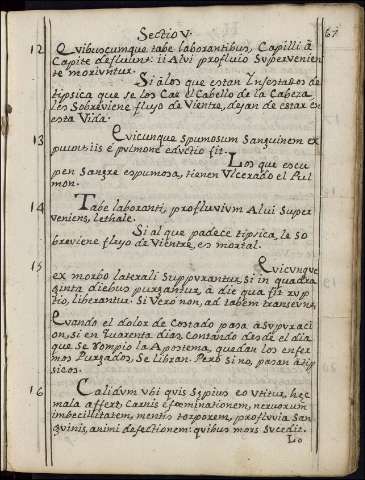 Sectio V.
67
12 Quibuscumque tabe laborantibus, Capilli à
Capite defluunt: ii Alvi profluio Supervenien
te moriuntur.
Si à los que estan Infestados de
tipsica que se los Cae el Cabello de la Cabeza
les Sobreviene fluxo de Vientre, dejan de estar en
esta Vida.
13 Quicunque Spumosum Sanguinem ex
puunt iis é pulmone eductio fit.
Los que escu
pen Sangre espumosa, tienen Vlcerado el Pul
mon.
14 Tabe laboranti, profluvium Alui Super
veniens, lethale.
Si al que padece tipsica, le so
breviene flujo de Vientre, es mortal.
15 Quicunque
ex morbo laterali Suppurantur, Si in quadra
ginta diebus purgantur, à die qua fit rup
tio, liberantur: Si Vero non, ad tabem transeunt.
Quando el dolor de Costado pasa à Supuraci
on, si en Quarenta dias, Contando desde el dia
que Se rompio la Apostema, quedan los enfer
mos Purgados, Se libran. Pero Si no, pasan à tip
sicos.
16 Calidum ubi quis Sæpius eo utitur, hæc
mala affert, Carnis effœminationem, nervorum
imbecillitatem, mentis torporem, profluvia San
guinis, animi defectionem: quibus mors Sucedit.
Lo